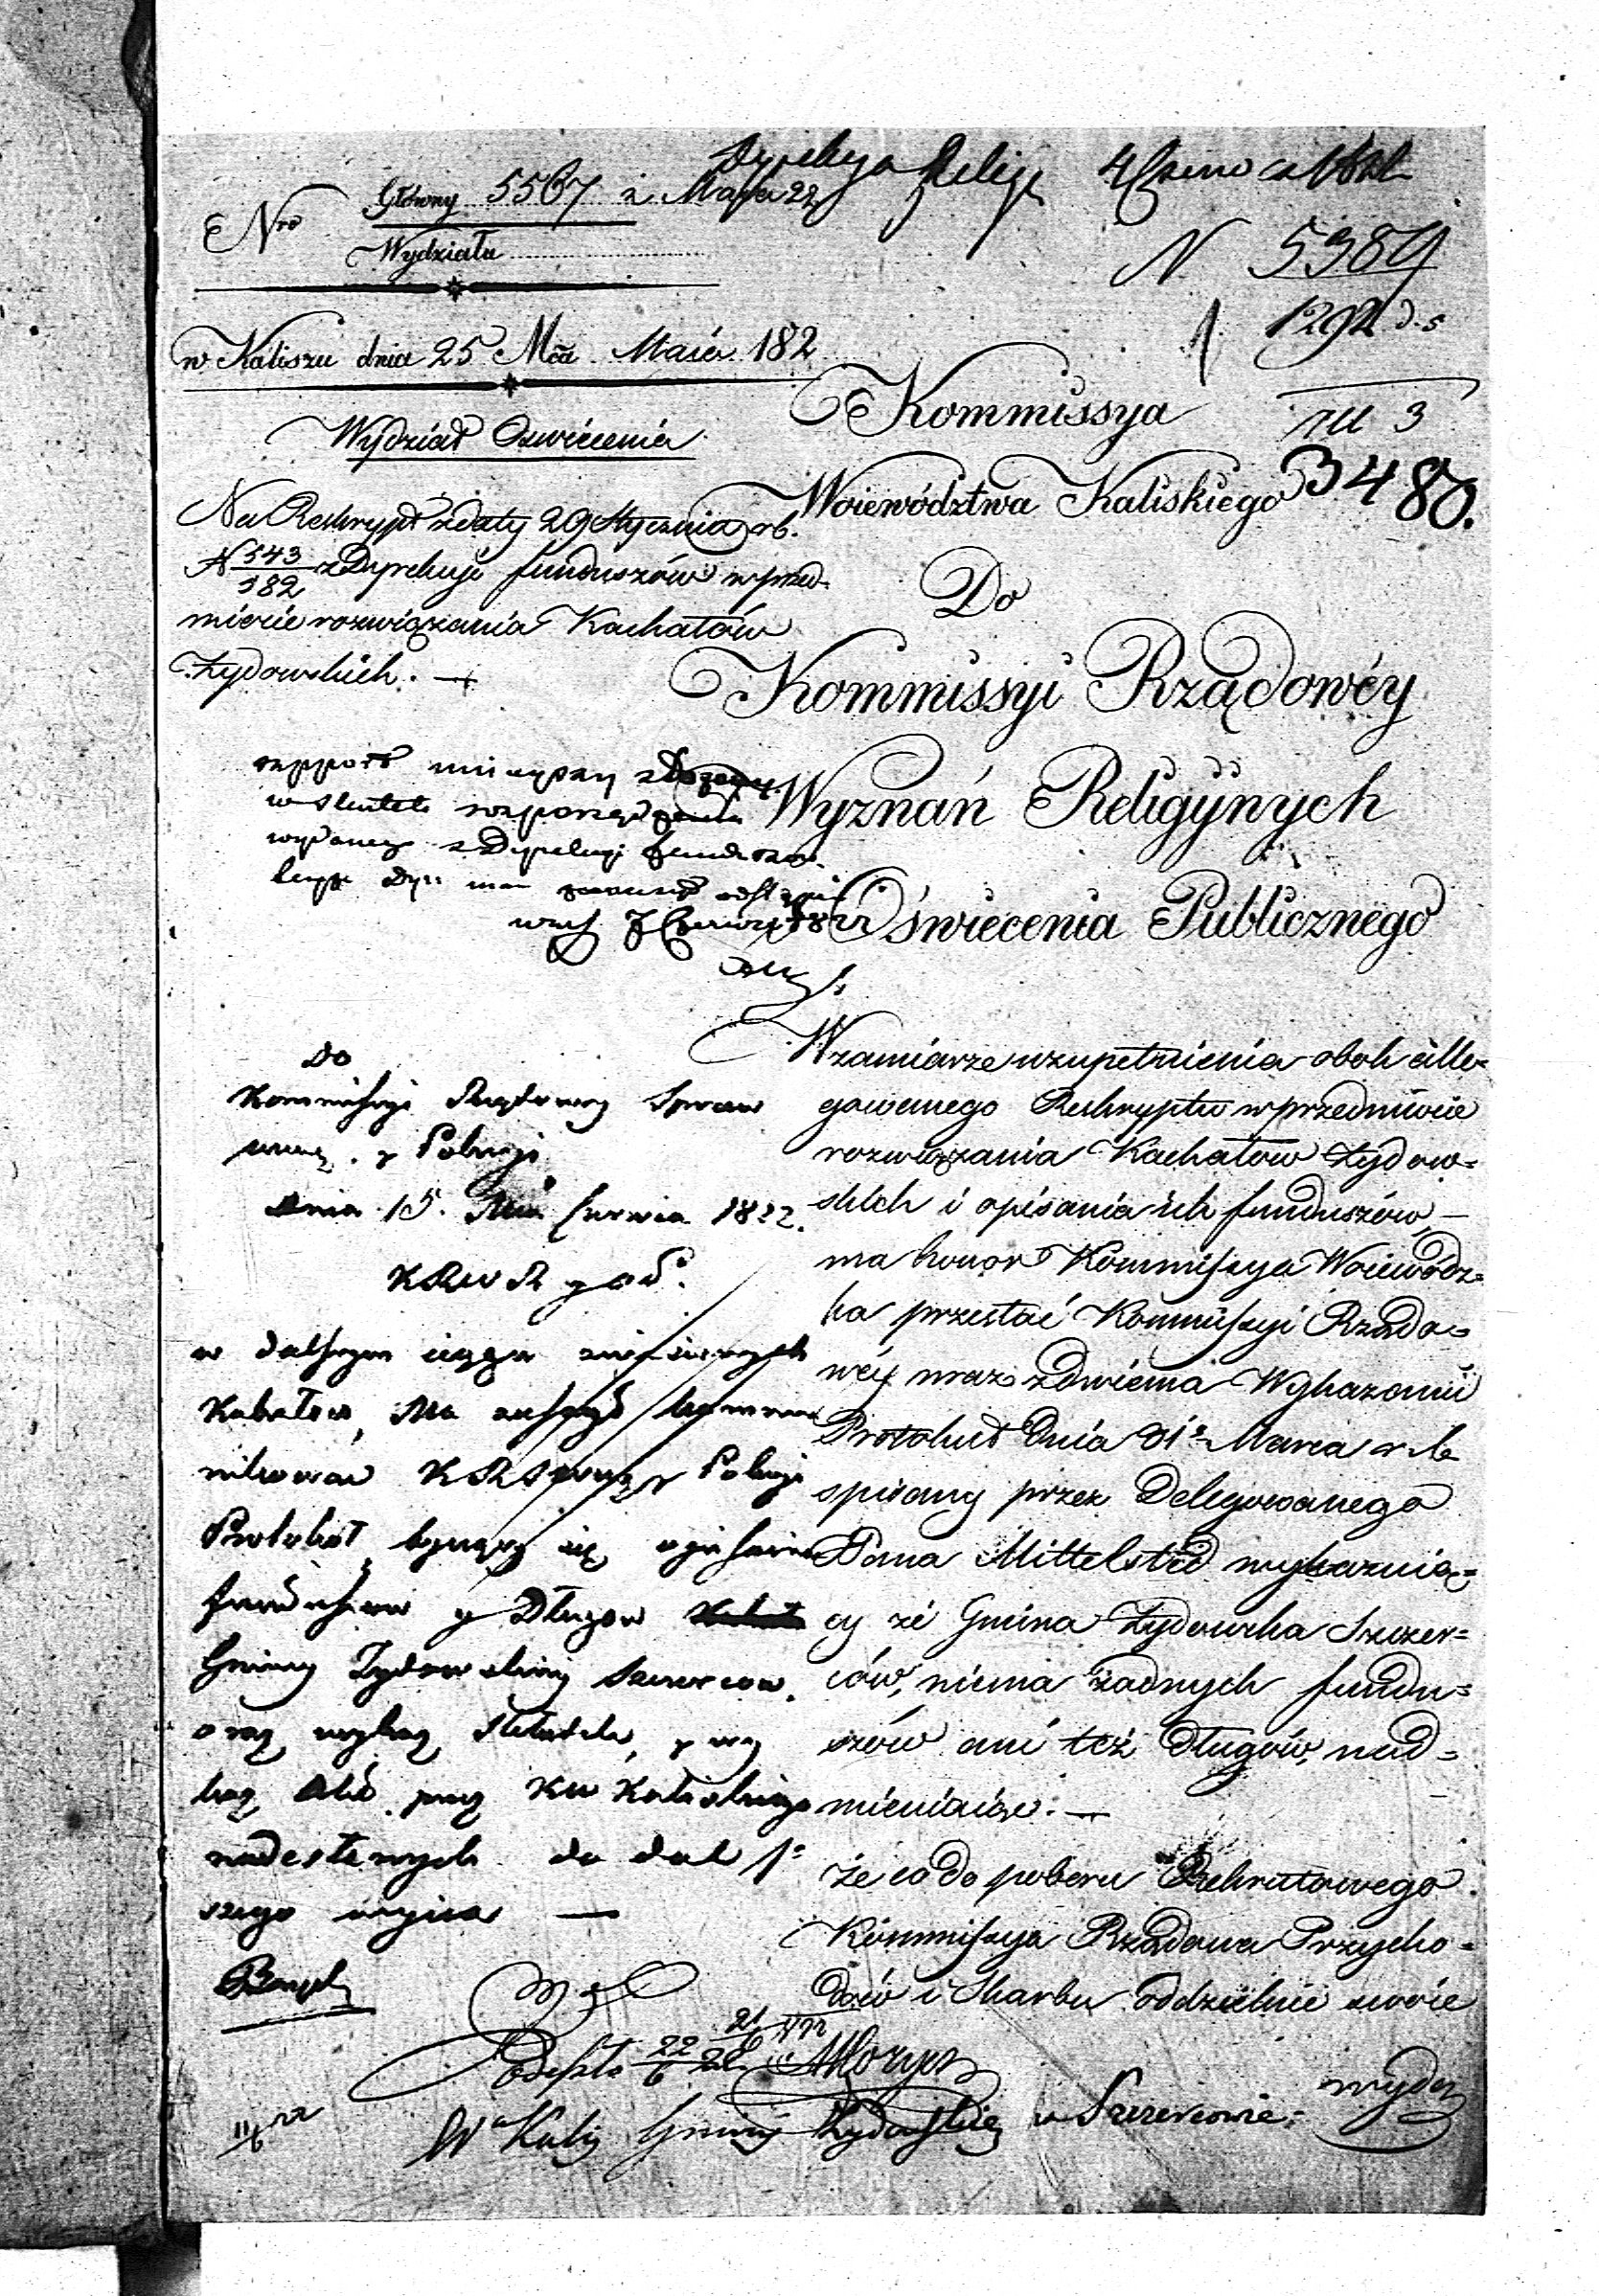 Dyrekcya Religij 4 Czerwca 1822
Nro Główny 5567 z Maja 22
Wydziału
N 5389
1292 d.s
w Kaliszu dnia 25 Mca Maia 182
Kommissya
3
Wydział Oswiecenia
Woiewództwa Kaliskiego
3480.
Na Reskrypt z daty 29 Stycznia rb.
N 543/182 z Dyrekcyi funduszów w przed-
miocie rozwiązania Kachałów
Żydowskich. —
Do
Kommissyi Rządowéy
Wyznań Religiynych
Oświecenia Publicznego
rapport ninieyszy złożony
w skutek rozporządzenia
wydanego z Dyrekcyi Funduszów
W zamiarze uzupełnienia obok alle-
gowanego Reskryptu w przedmiocie
rozwiązania Kachałow Żydow-
skich i opisania ich funduszów —
ma honor Kommissya Woiewódz-
ka przesłać Kommissyi Rządo-
wéy wraz z dwiema Wykazami
Protokuł Dnia 31o Marca r. b.
spisany przez Delegowanego
Pana Mittelstäd wykazuią-
cy że Gmina Żydowska Szczer-
ców, niema żadnych fundu-
szów ani też długów, nad-
mieniaiąc: —
że co do poboru Rekrutowego
Kommissya Rządowa Przycho-
dów i Skarbu oddzielnie swoie
wyda
Do
Kommissyi Rządowey Spraw
Wewnę. y Policyi
dnia 15. Mca Czerwca 1822.
K R W R y O P.
w dalszym ciągu zniesionych
Kahałow, Ma zaszczyt kommu-
nikować K R S Wewnę y Policyi
Protokuł, tyczący się opisania
funduszow y Długow
Gminy Żydowskiey Szczercow,
oraz wykaz składek, y wy
kaz przez K W Kaliskiego
nadesłanych do dal
szego użycia —
21/6
22/6 22
11/6 22
Wa Kalis Gminy Żydowskiey w Szczercowie